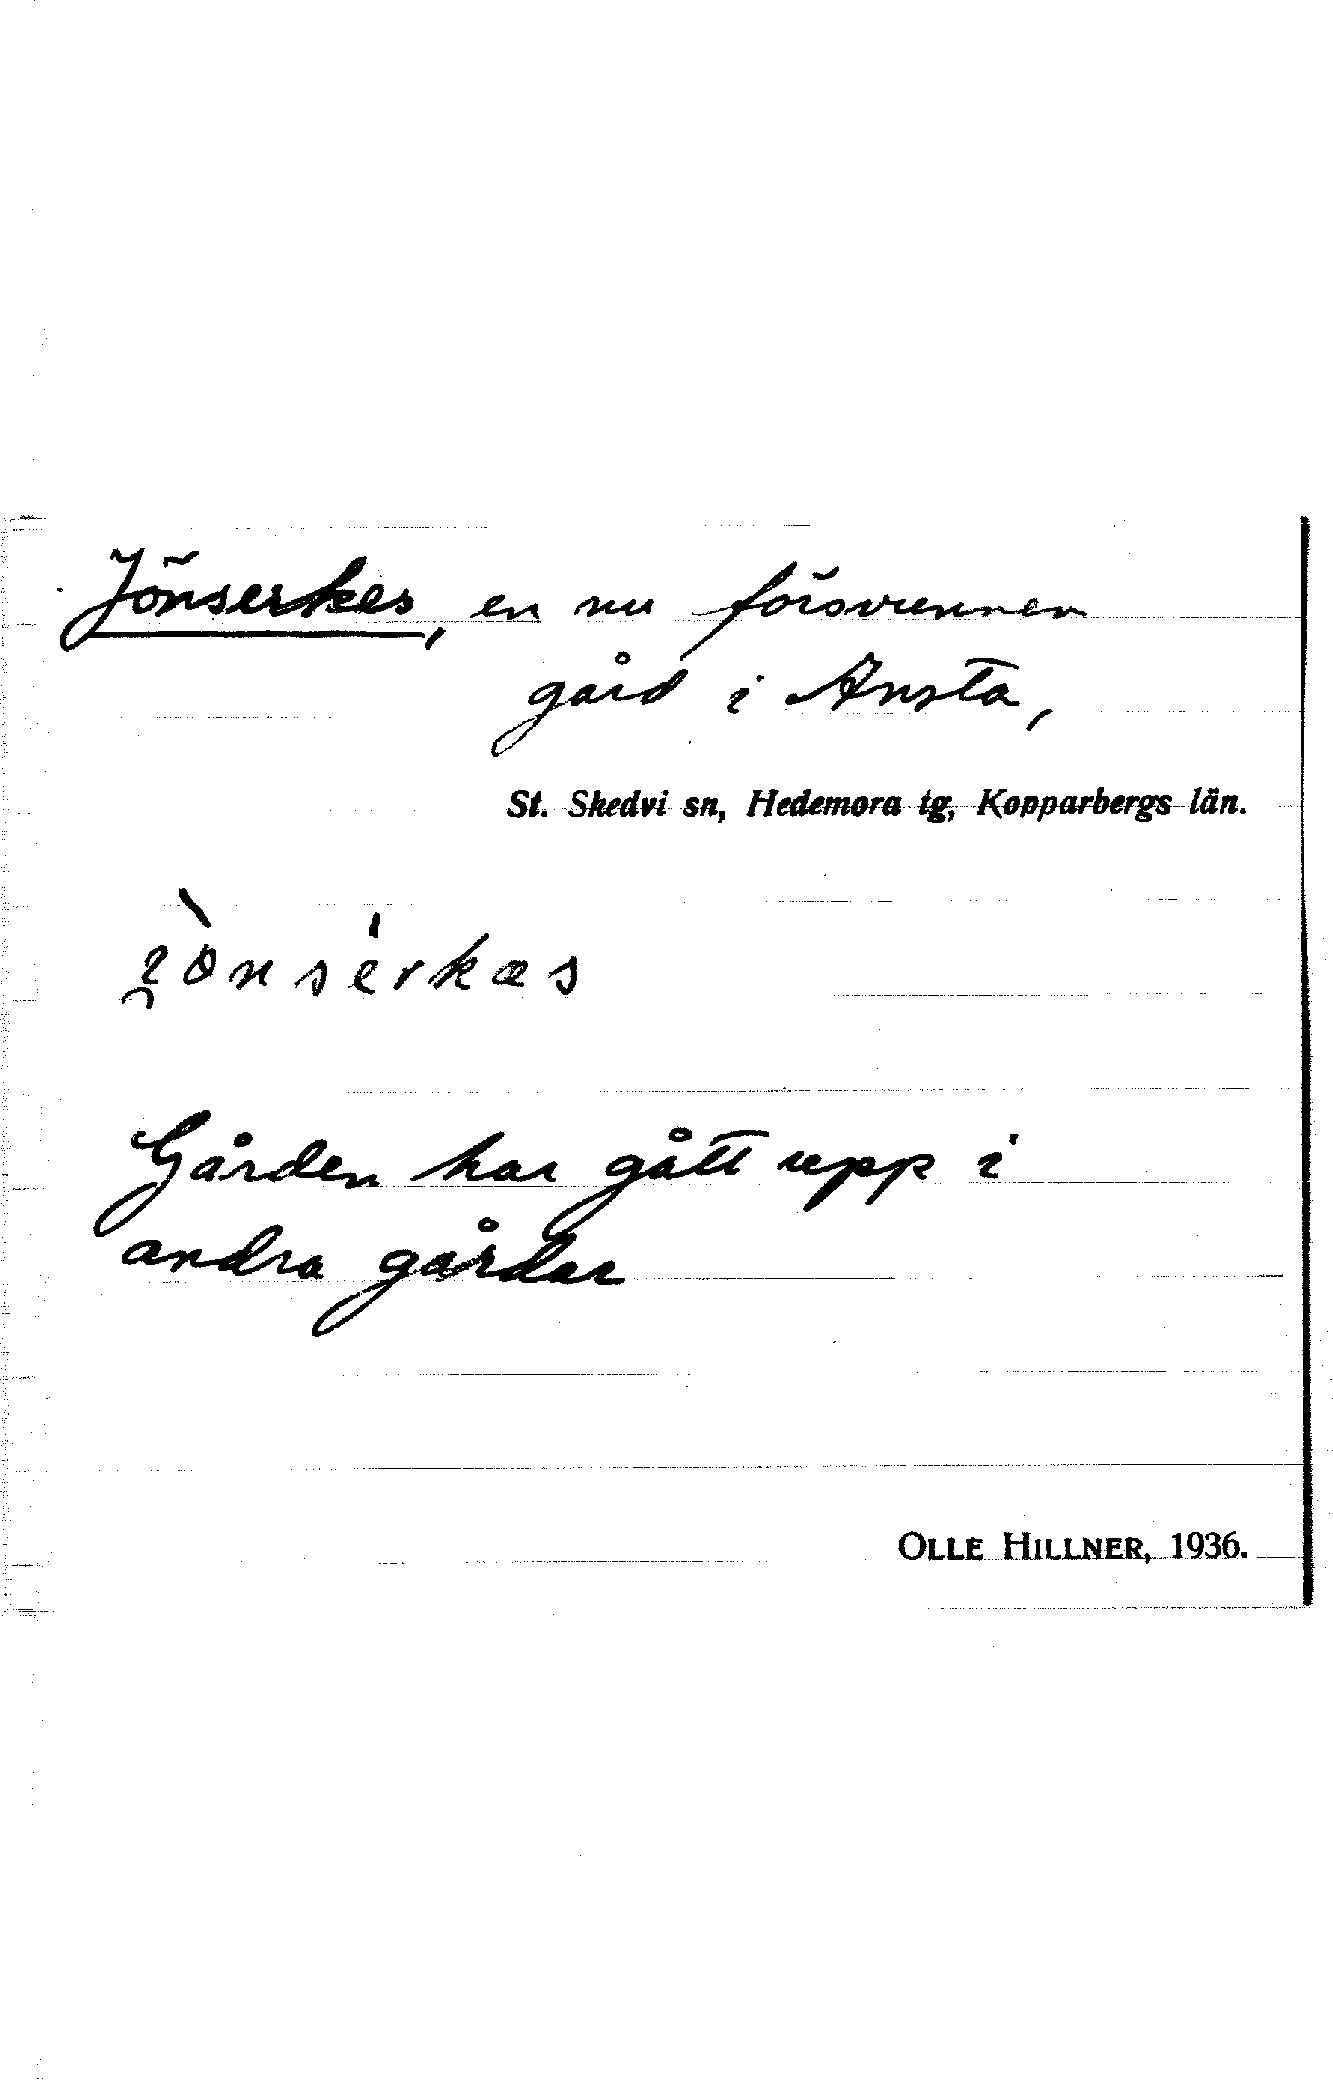 Jönserkes, en nu försvunnen
gård i Ansta,
St. Skedvi sn, Hedemora tg, Kopparbergs län.
i̯ònsérkæs
Gården har gått upp i
andra gårdar
OLLE HILLNER, 1936.